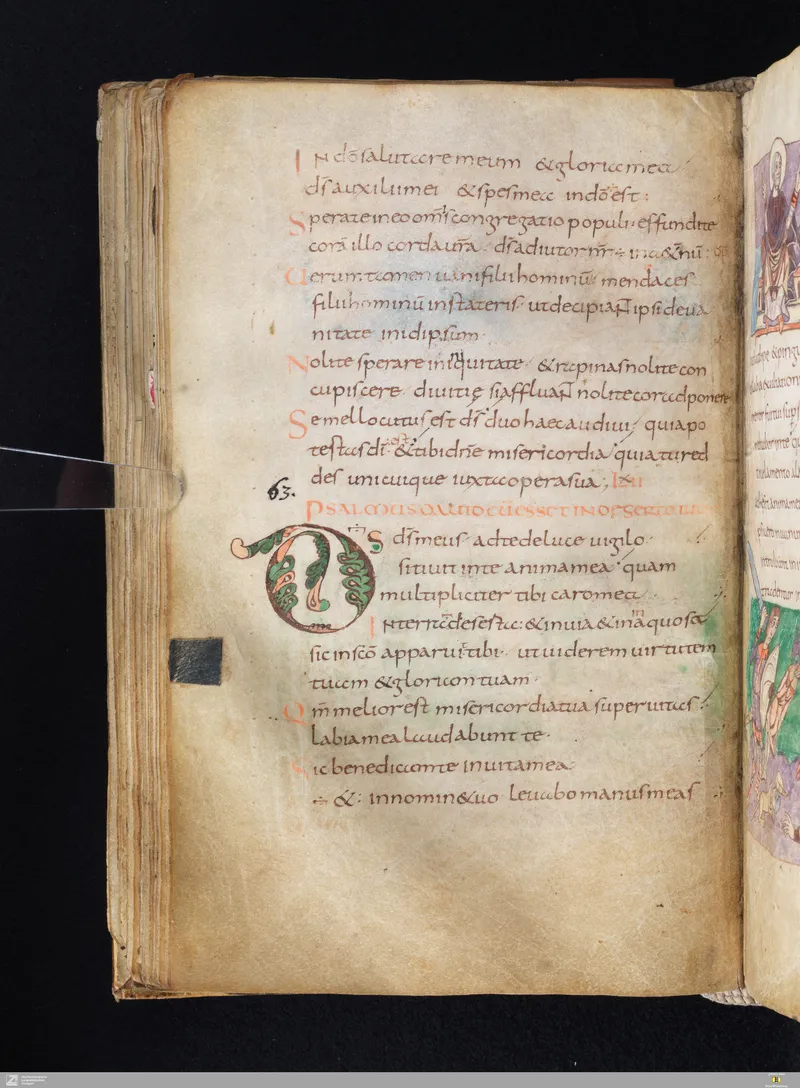 In dō salutare meum & gloria mea
dſ auxilii mei & spes mea in dō est:
Sperate in eo om̄s congregatio populi effundite
corā illo corda ur̄a dſ adiutor nr̄ ÷ in
Uerumtamen uani filii hominū mendaces
filii hominū in stateris ut decipiant ipsi de ua
nitate in idipsum
Nolite sperare in iniquitate & rapinas nolite con
cupiscere diuitię si affluant nolite cor adponere
Semel locutus est dſ duo haec audiui quia po
testas dī est & tibi dn̄e misericordia quia tu red
des unicuique iuxta opera sua
63.
PSALMUS DAUID CUM ESSET IN DESERTO
DS dſ meus ad te de luce uigilo
sitiuit in te anima mea quam
multipliciter tibi caro mea
In terra deserta: & inuia & inaquosa
sic in scō apparui tibi ut uiderem uirtutem
tuam & gloriam tuam
Qm̄ melior est misericordia tua super uitas
labia mea laudabunt te
Sic benedicam te in uita mea
÷ &: in nomine tuo leuabo manus meas